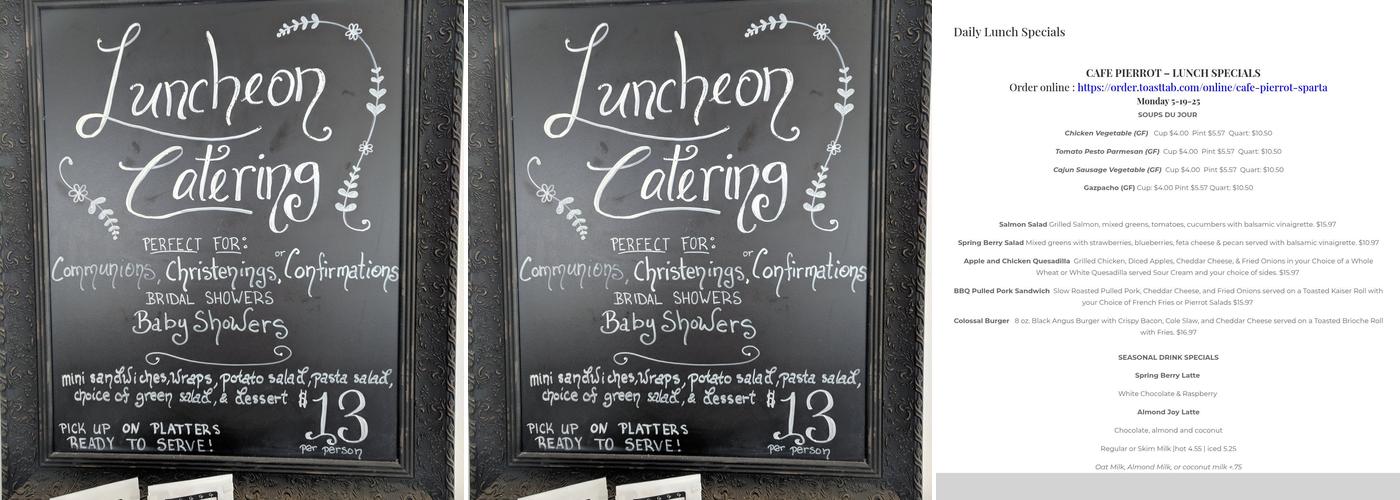 Luncheon
Catering
PERFECT FOR:
Communions, Christenings, or Confirmations
BRIDAL SHOWERS
Baby Showers
mini sandwiches, wraps, potato salad, pasta salad,
choice of green salad, & dessert $13
per person
PICK UP ON PLATTERS
READY TO SERVE!
Luncheon
Catering
PERFECT FOR:
Communions, Christenings, or Confirmations
BRIDAL SHOWERS
Baby Showers
mini sandwiches, wraps, potato salad, pasta salad,
choice of green salad, & dessert $13
per person
PICK UP ON PLATTERS
READY TO SERVE!
Daily Lunch Specials
CAFE PIERROT – LUNCH SPECIALS
Order online : https://order.toasttab.com/online/cafe-pierrot-sparta
Monday 5-19-25
SOUPS DU JOUR
Chicken Vegetable (GF) Cup $4.00 Pint $5.57 Quart: $10.50
Tomato Pesto Parmesan (GF) Cup $4.00 Pint $5.57 Quart: $10.50
Cajun Sausage Vegetable (GF) Cup $4.00 Pint $5.57 Quart: $10.50
Gazpacho (GF) Cup: $4.00 Pint $5.57 Quart: $10.50
Salmon Salad Grilled Salmon, mixed greens, tomatoes, cucumbers with balsamic vinaigrette. $15.97
Spring Berry Salad Mixed greens with strawberries, blueberries, feta cheese & pecan served with balsamic vinaigrette. $10.97
Apple and Chicken Quesadilla Grilled Chicken, Diced Apples, Cheddar Cheese, & Fried Onions in your Choice of a Whole
Wheat or White Quesadilla served Sour Cream and your choice of sides. $15.97
BBQ Pulled Pork Sandwich Slow Roasted Pulled Pork, Cheddar Cheese, and Fried Onions served on a Toasted Kaiser Roll with
your Choice of French Fries or Pierrot Salads $15.97
Colossal Burger 8 oz. Black Angus Burger with Crispy Bacon, Cole Slaw, and Cheddar Cheese served on a Toasted Brioche Roll
with Fries. $16.97
SEASONAL DRINK SPECIALS
Spring Berry Latte
White Chocolate & Raspberry
Almond Joy Latte
Chocolate, almond and coconut
Regular or Skim Milk |hot 4.55 | iced 5.25
Oat Milk, Almond Milk, or coconut milk +.75